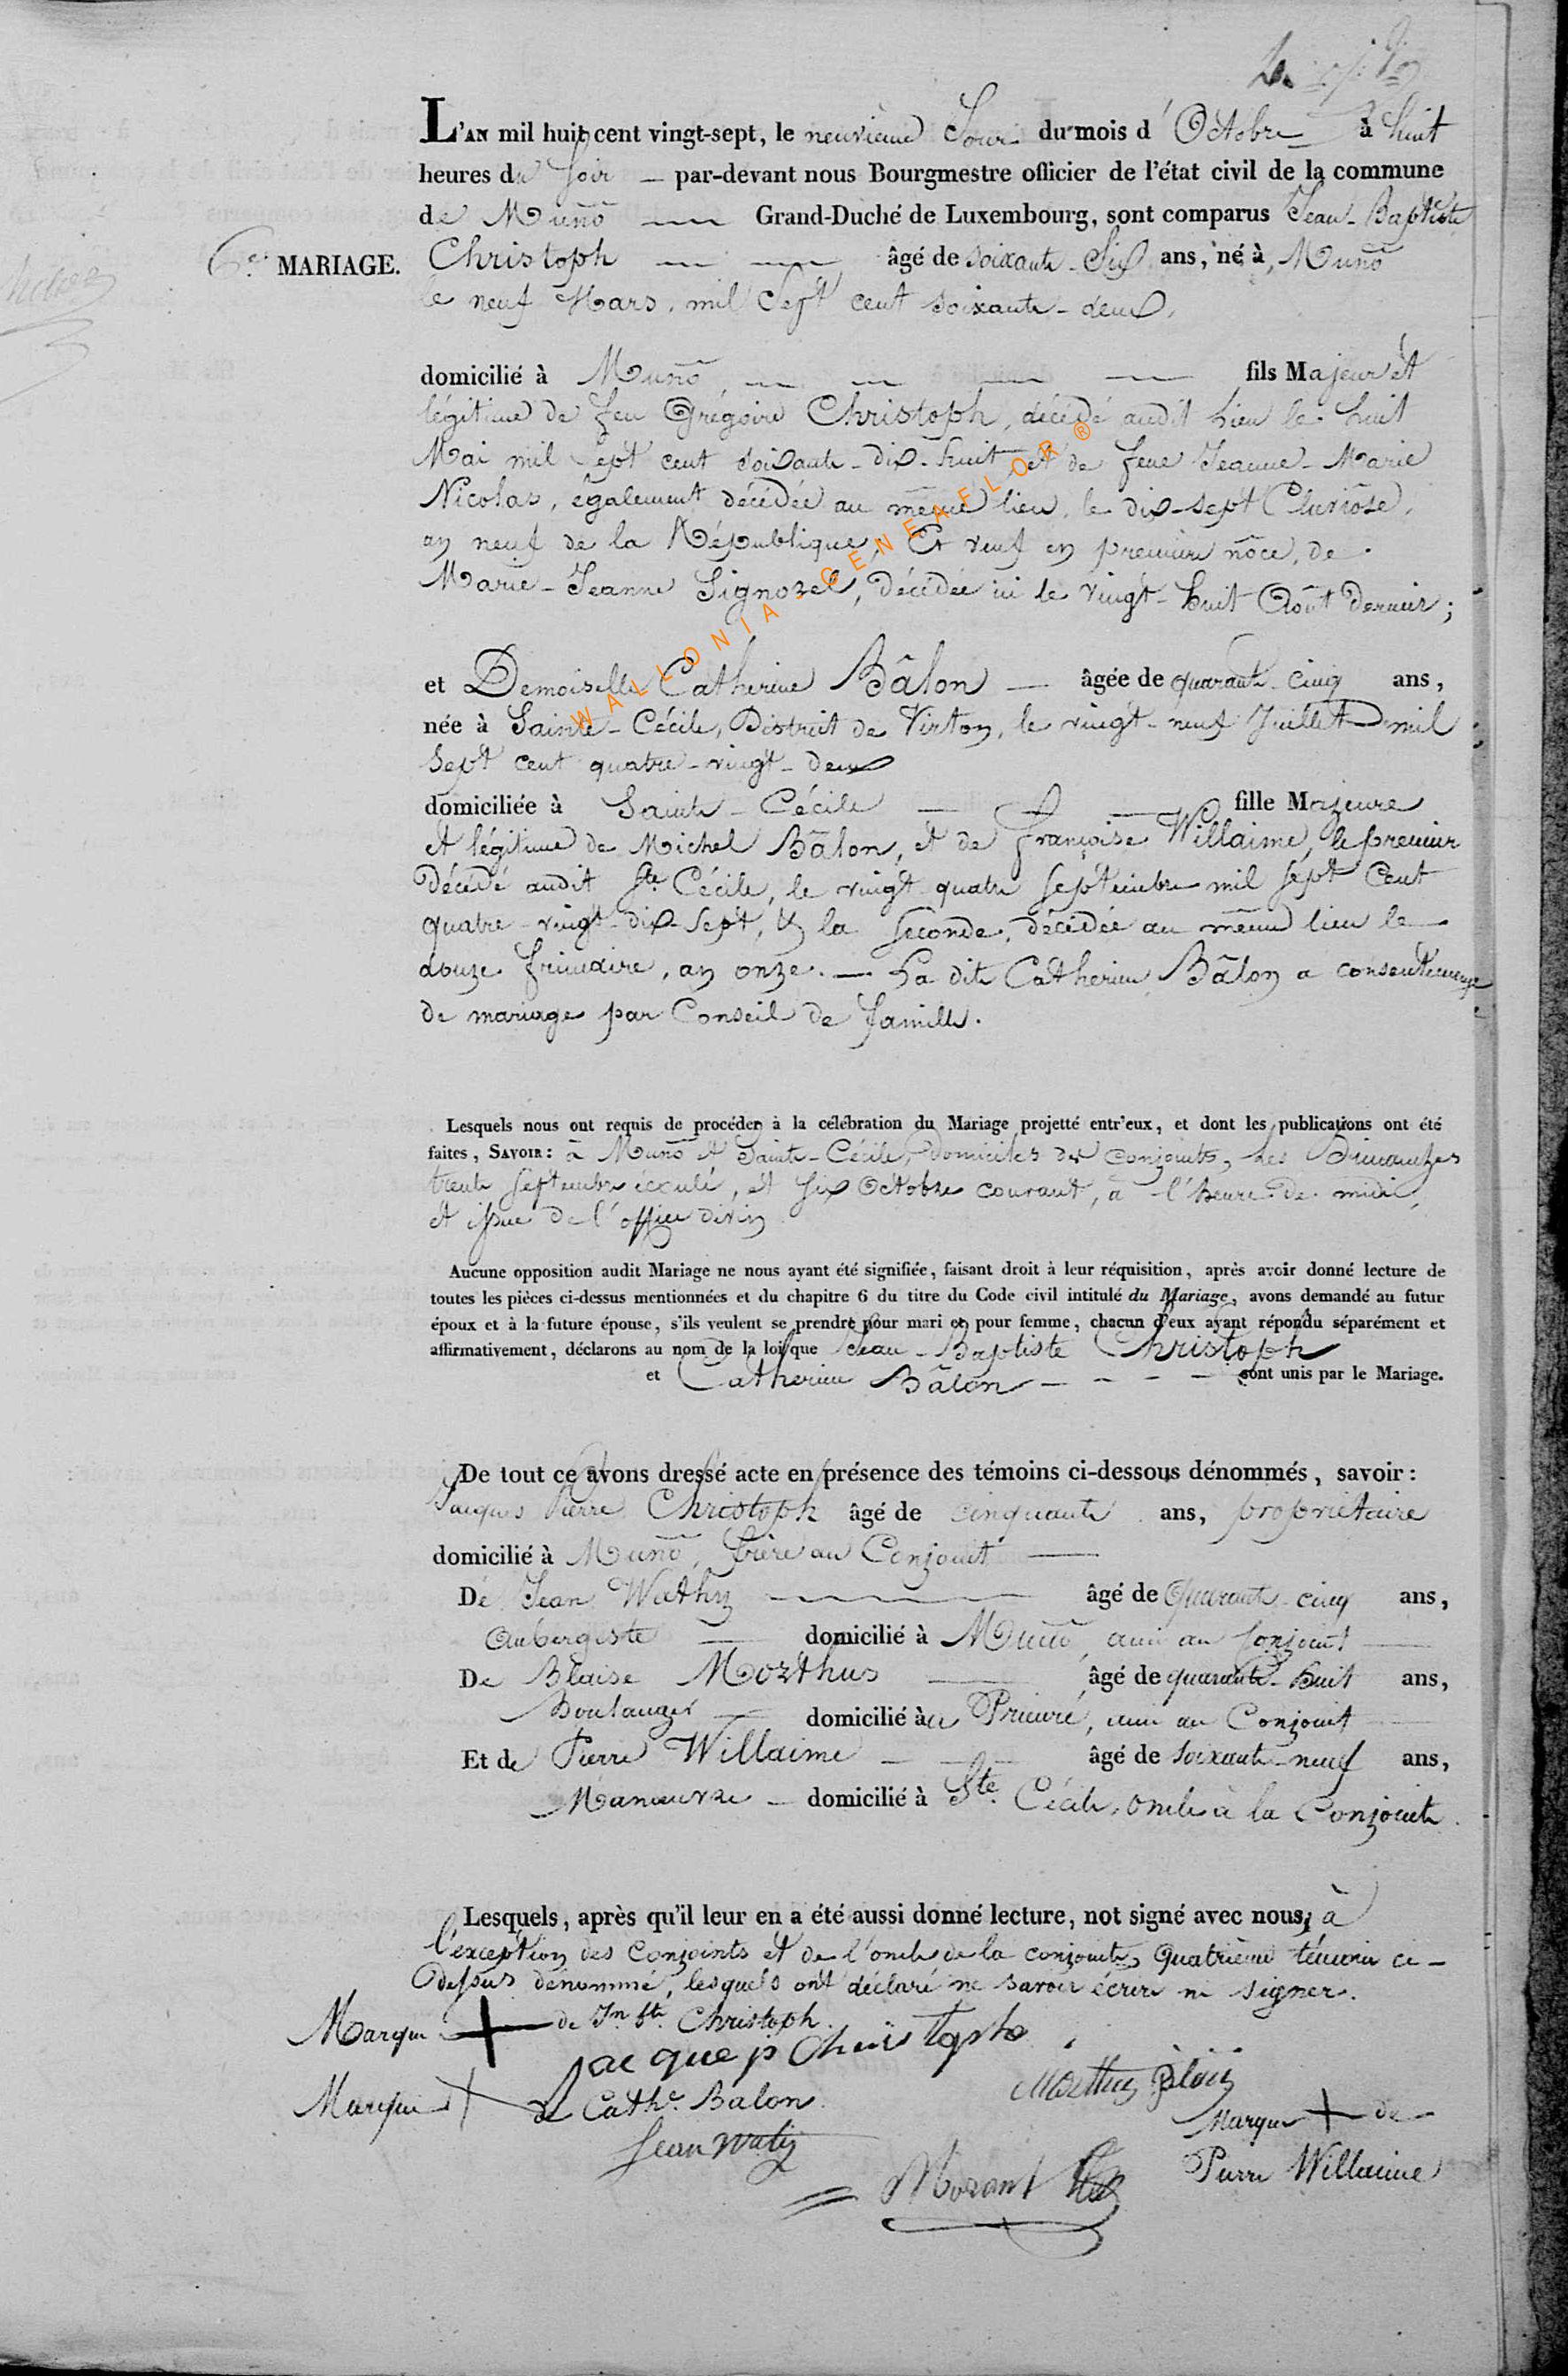 L'AN mil huit cent vingt-sept, le neuvième Jour du mois d'Octobre à huit
heures du soir — par-devant nous Bourgmestre officier de l'état civil de la commune
de Muño — Grand-Duché de Luxembourg, sont comparus Jean-Baptiste
6e. MARIAGE. Christoph — — âgé de soixante-Six ans, né à Muño
le neuf Mars, mil Sept cent soixante-deux,
domicilié à Muño, — — — — fils Majeur et
légitime de feu Grégoire Christoph, décédé audit lieu le huit
Mai mil sept cent soixante-dix-huit et de feue Jeanne-Marie
Nicolas, également décédée au même lieu, le dix-sept Pluviôse,
an neuf de la République, Et veuf en première nôce, de
Marie-Jeanne Signorel, Décédée ici le vingt-huit Août Dernier;
et Demoiselle Catherine Bâlon — âgée de quarante-cinq ans,
née à Sainte-Cécile, District de Virton, le vingt-neuf Juillet mil
Sept cent quatre-vingt-deux
domiciliée à Sainte-Cécile — — — fille Majeure
et légitime de Michel Bâlon, et de françoise Willaime, le premier
Décédé audit Ste Cécile, le vingt quatre septembre mil sept Cent
quatre-vingt-dix-sept, & la seconde, décédée au même lieu le
douze frimaire, an onze. — La dite Catherine Bâlon a consentement
de mariage par Conseil de famille.
Lesquels nous ont requis de procéder à la célébration du Mariage projetté entr'eux, et dont les publications ont été
faites, SAVOIR: à Muño et Sainte-Cécile, Domiciles des conjoints, les Dimanches
trente septembre écoulé, et six Octobre courant, à l'heure de midi,
et issue de l'office divin
Aucune opposition audit Mariage ne nous ayant été signifiée, faisant droit à leur réquisition, après avoir donné lecture de
toutes les pièces ci-dessus mentionnées et du chapitre 6 du titre du Code civil intitulé du Mariage, avons demandé au futur
époux et à la future épouse, s'ils veulent se prendre pour mari et pour femme, chacun d'eux ayant répondu séparément et
affirmativement, déclarons au nom de la loi que Jean-Baptiste Christoph
et Catherine Bâlon — — — — sont unis par le Mariage.
De tout ce avons dressé acte en présence des témoins ci-dessous dénommés, savoir:
Jacques Pierre Christoph âgé de cinquante ans, propriétaire
domicilié à Muño, frère au Conjoint —
De Jean Wathy — âgé de Quarante-cinq ans,
Aubergiste — domicilié à Muño, ami au conjoint —
De Blaise Morthus — âgé de quarante-huit ans,
Boulanger — domicilié au Prieuré, ami au Conjoint —
Et de Pierre Willaime — — âgé de soixante-neuf ans,
Manœuvre — domicilié à Ste Cécile, oncle à la Conjointe.
Lesquels, après qu'il leur en a été aussi donné lecture, ont signé avec nous, à
l'exception des Conjoints et de l'oncle de la conjointe, Quatrième témoin ci-
Dessus dénommé, lesquels ont déclaré ne savoir écrire ni signer.
Marque + de Jn. Bte. Christoph.
jacque p Christophe
Marque + de Cathe. Balon.
Morthus Blais
Jean Waty
Marque + de
Pierre Willaime
Morant
WALLONIA - GENEAFLOR ®